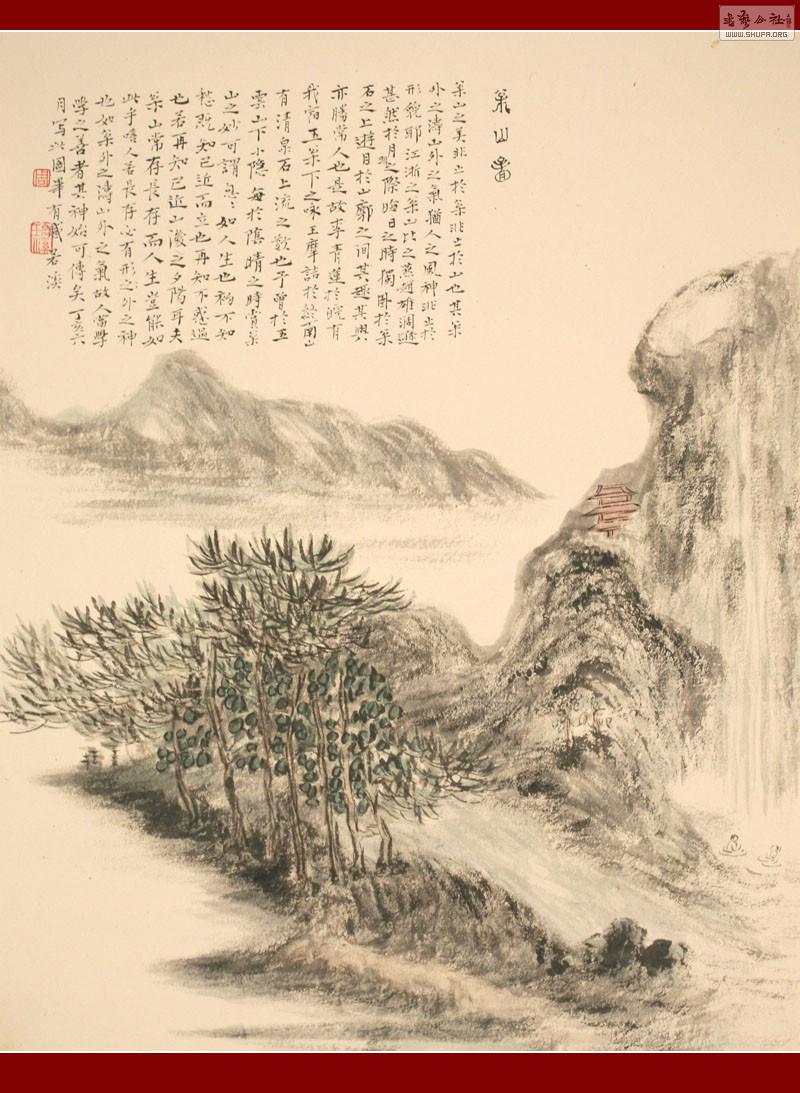 枀山圖
枀山之美非止於枀非止於山也其枀
外之濤山外之氣猶人之風神非止於
形貌耶江浙之枀山比之燕趙雄濶遜
甚然於月之際晦日之時獨卧於枀
石之上遊目於山廓之间其趣其興
亦勝常人也是故李青蓮於皖有
我宿五枀下之咏王摩詰於終南山
有清泉石上流之歎也予曾於五
雲山下小隐每於陰晴之時賞枀
山之妙可謂如人生也初不知
愁既知已近而立也再知不惑過
也若再知已近山後之夕陽耳夫
枀山常存長存而人生豈能如
此乎唔人若長存必有形之外之神
也如枀外之濤山外之氣故人當學
學之善者其神始可傳矣丁亥六
月写此圖畢有感若溪
WWW.SHUFA.ORG